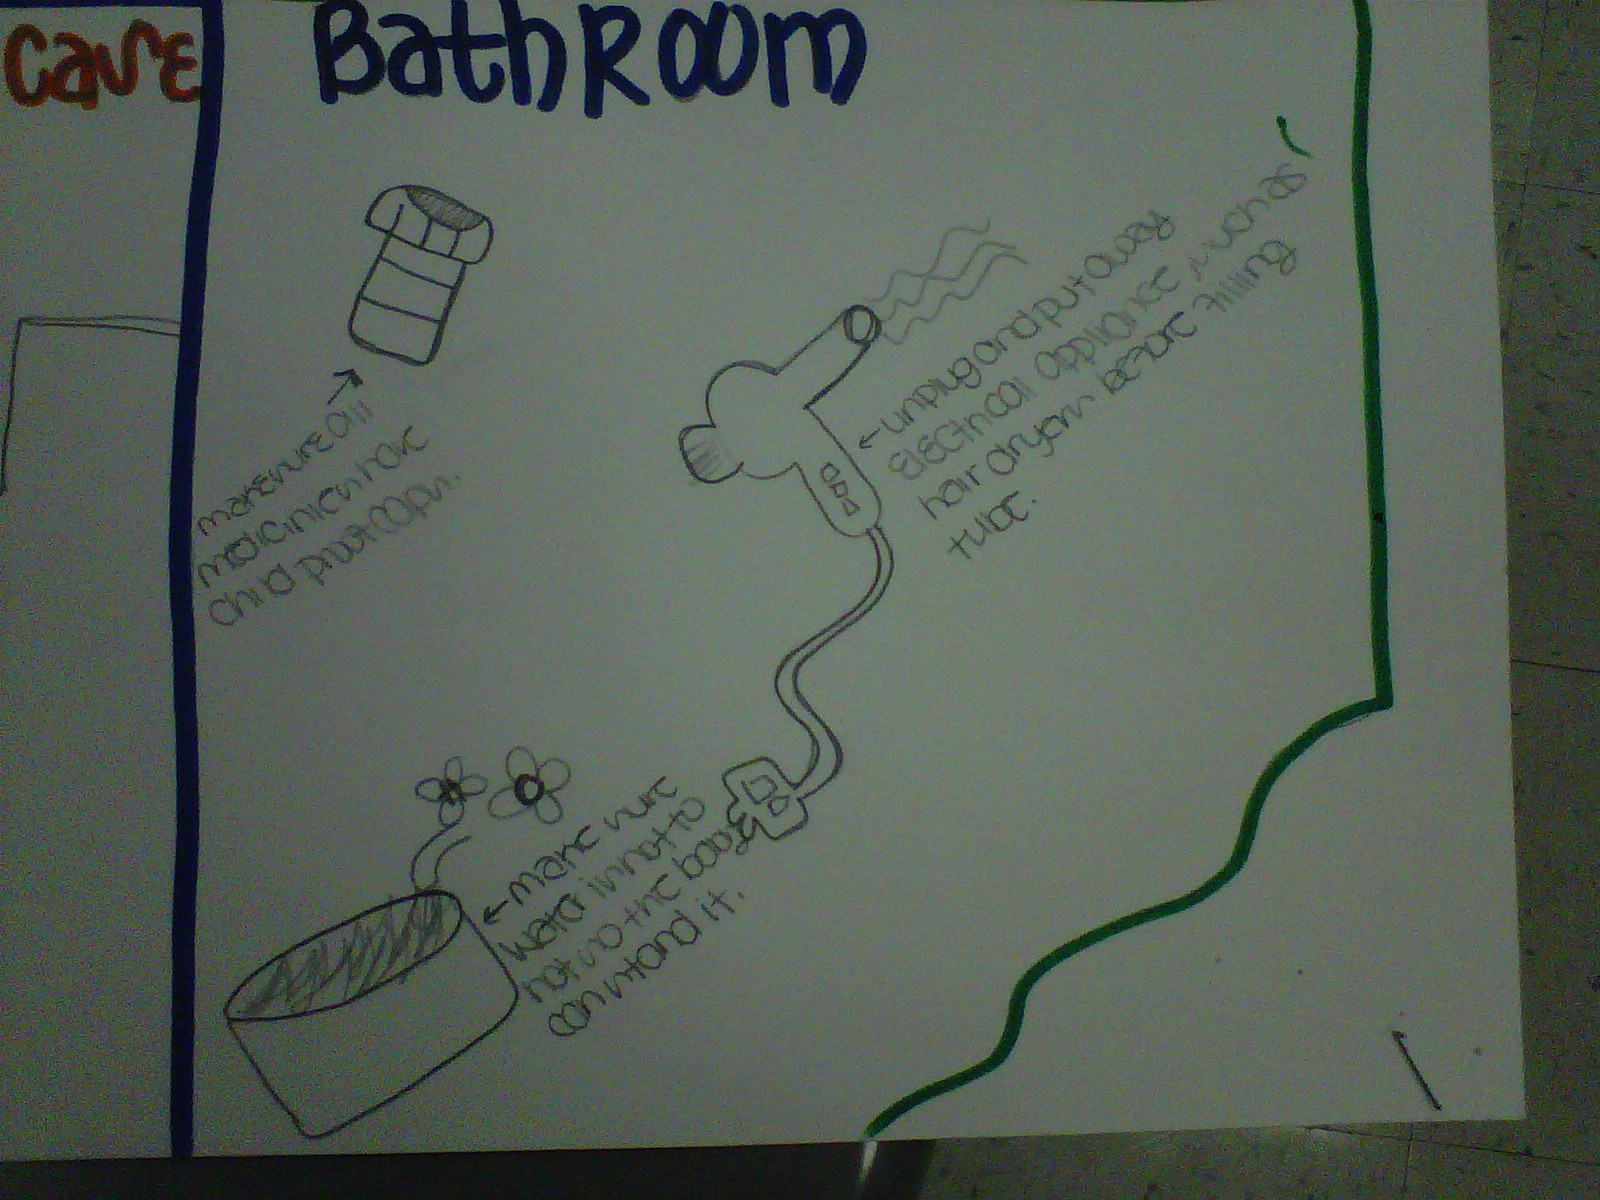 Care
BathRoom
make sure all
medicines have
child proof caps.
←unplug and put away
Electrical appliance such as
hair dryers before filling
tube.
←make sure
water is not to
hot so the baby
can stand it.